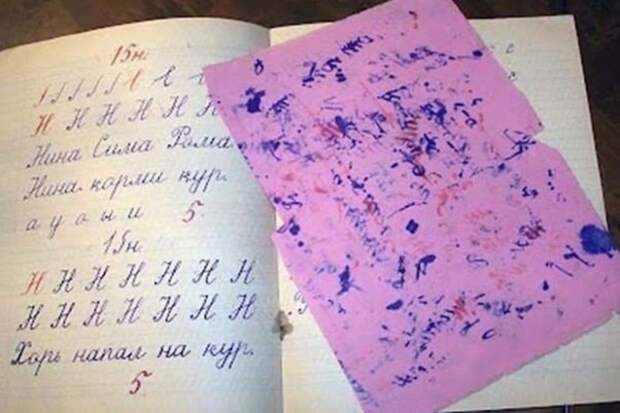 15 н.
Н Н Н Н Н Н
Нина Сима Рома
Нина корми кур.
а у о ы и 5
15 н.
Н Н Н Н Н Н Н
Н Н Н Н Н Н Н
Хорь напал на кур.
5